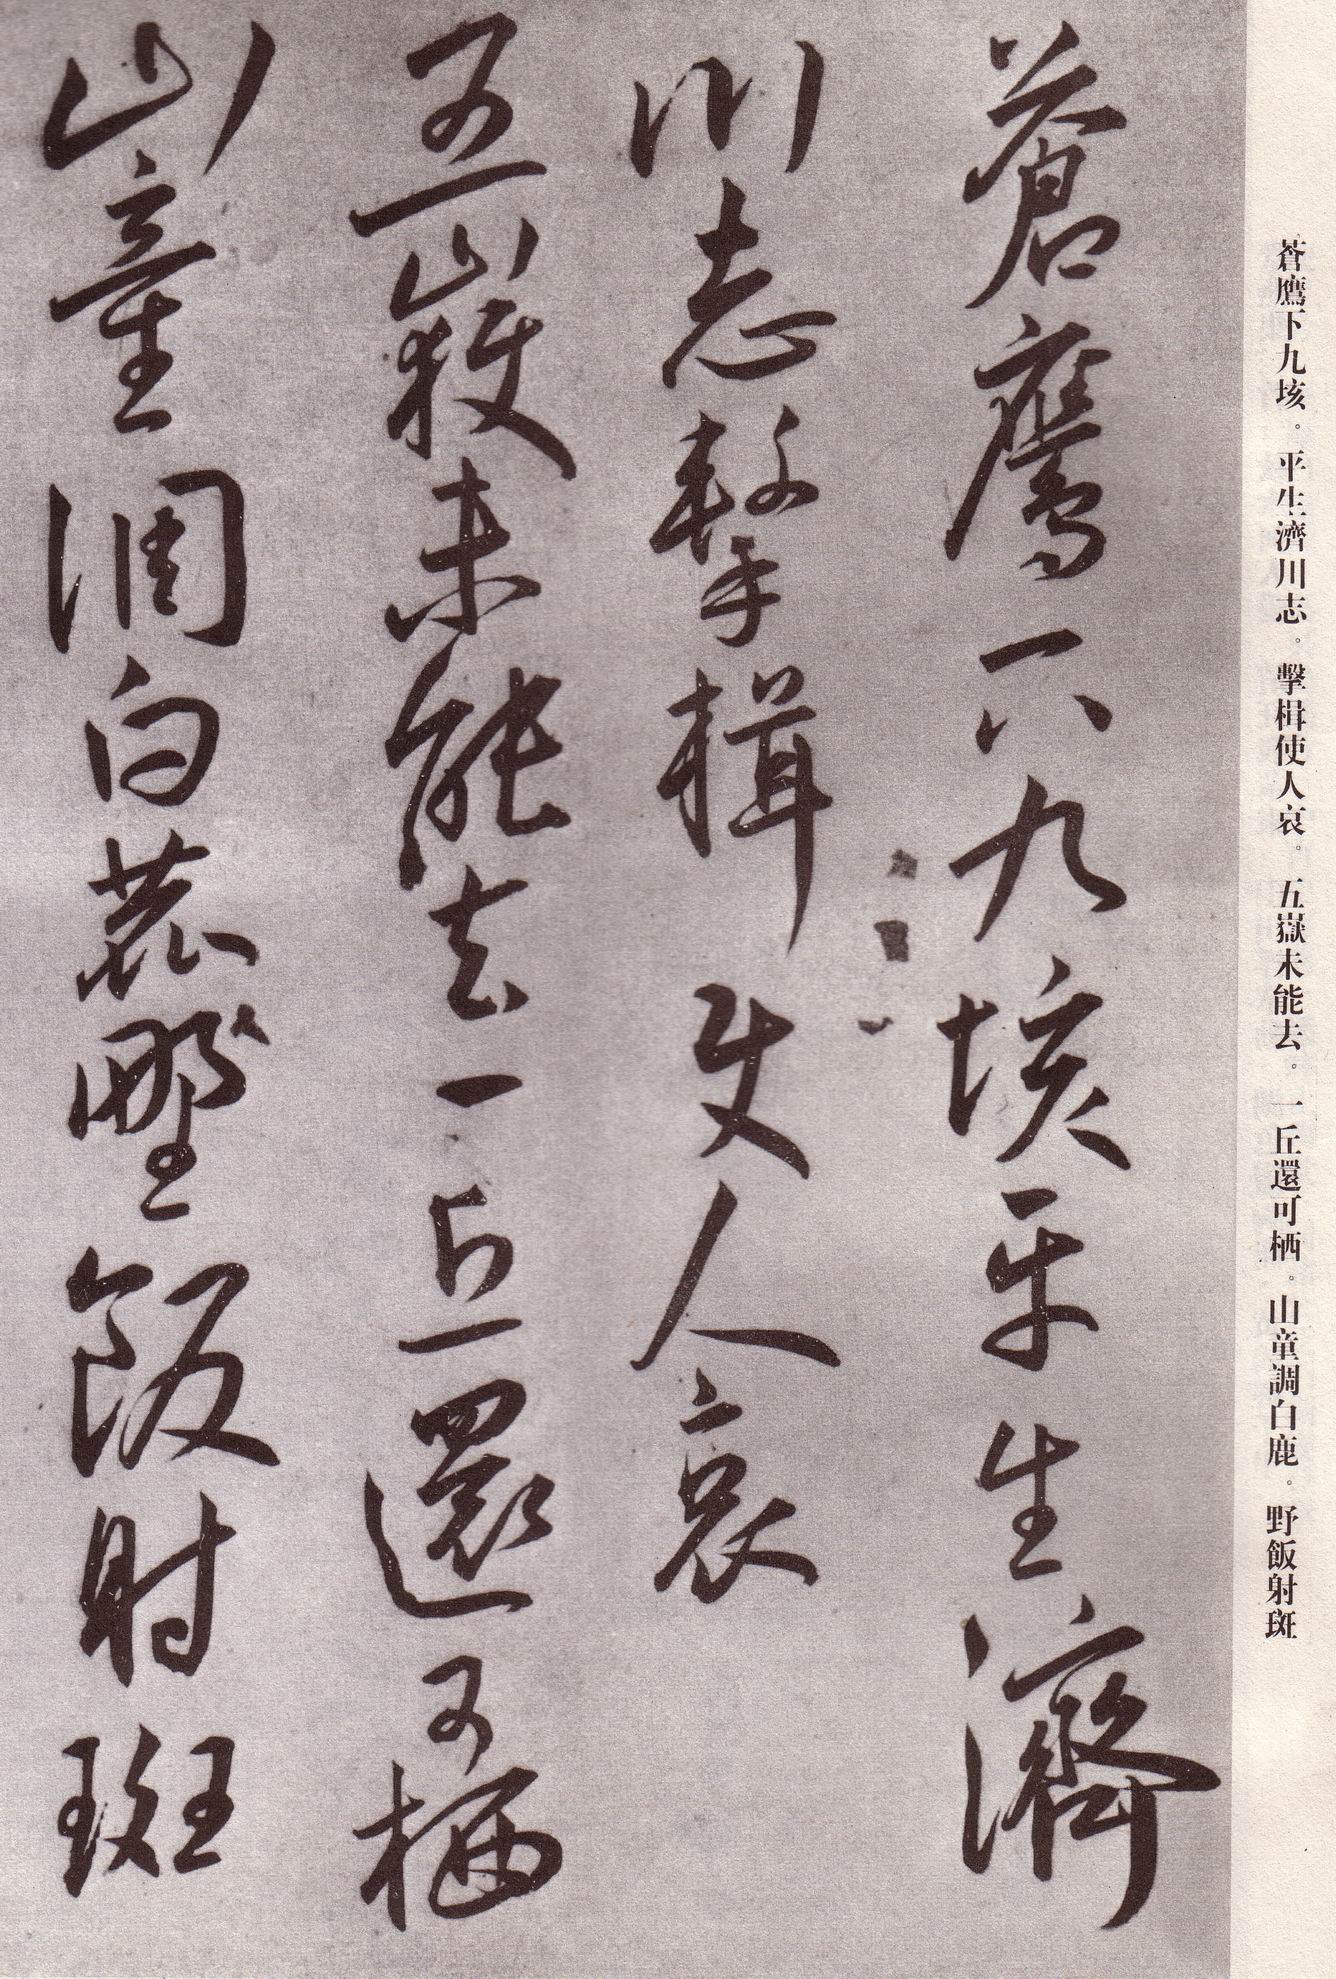 蒼鷹下九垓。平生濟川志。擊楫使人哀。五嶽未能去。一丘還可栖。山童調白鹿。野飯射斑
蒼鷹下九垓平生濟
川志擊楫使人哀
五嶽未能去一丘還可栖
山童調白鹿野飯射斑